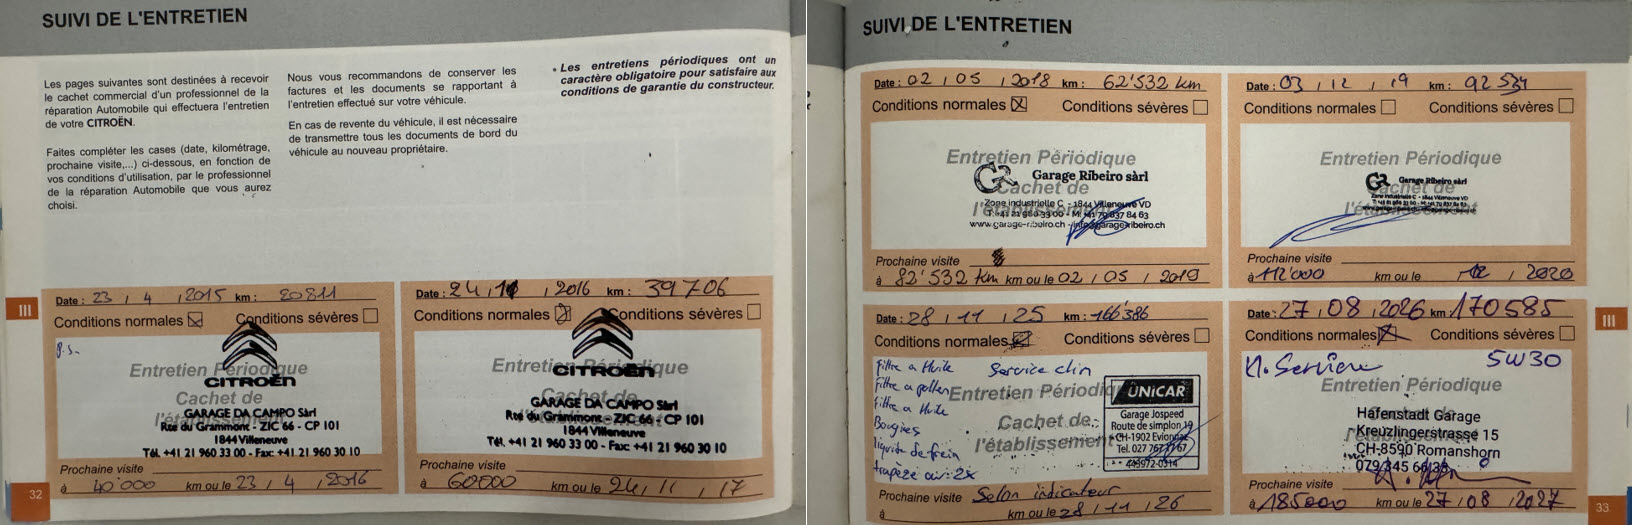 SUIVI DE L'ENTRETIEN
Les pages suivantes sont destinées à recevoir
le cachet commercial d'un professionnel de la
réparation Automobile qui effectuera l'entretien
de votre CITROËN.
Faites compléter les cases (date, kilométrage,
prochaine visite,...) ci-dessous, en fonction de
vos conditions d'utilisation, par le professionnel
de la réparation Automobile que vous aurez
choisi.
Nous vous recommandons de conserver les
factures et les documents se rapportant à
l'entretien effectué sur votre véhicule.
En cas de revente du véhicule, il est nécessaire
de transmettre tous les documents de bord du
véhicule au nouveau propriétaire.
Les entretiens périodiques ont un
caractère obligatoire pour satisfaire aux
conditions de garantie du constructeur.
III
Date : 23 / 4 / 2015 km : 20811
Conditions normales Conditions sévères
P.S.
Entretien Périodique
CITROËN
Cachet de
l'établissement
GARAGE DA CAMPO Sàrl
Rte du Grammont - ZIC 66 - CP 101
1844 Villeneuve
Tél. +41 21 960 33 00 - Fax: +41 21 960 30 10
Prochaine visite
à 40'000 km ou le 23 / 4 / 2016
Date : 24 / 11 / 2016 km : 39706
Conditions normales Conditions sévères
Entretien Périodique
CITROËN
Cachet de
l'établissement
GARAGE DA CAMPO Sàrl
Rte du Grammont - ZIC 66 - CP 101
1844 Villeneuve
Tél. +41 21 960 33 00 - Fax: +41 21 960 30 10
Prochaine visite
à 60000 km ou le 24 / 11 / 17
32
SUIVI DE L'ENTRETIEN
Date : 02 / 05 / 2018 km : 62'532 km
Conditions normales Conditions sévères
Entretien Périodique
GR Garage Ribeiro sàrl
Cachet de
Zone industrielle C - 1844 Villeneuve VD
l'établissement
T: +41 21 960 33 00 - M: +41 79 837 84 63
www.garage-ribeiro.ch - info@garage-ribeiro.ch
Prochaine visite
à 82'532 km km ou le 02 / 05 / 2019
Date : 03 / 12 / 19 km : 92 534
Conditions normales Conditions sévères
Entretien Périodique
GR Garage Ribeiro sàrl
Cachet de
Zone industrielle C - 1844 Villeneuve VD
l'établissement
Prochaine visite
à 112'000 km ou le 12 / 2020
Date : 28 / 11 / 25 km : 166'386
Conditions normales Conditions sévères
Filtre a Huile Service clim
Filtre a pollen
Filtre a Huile
Bougies
liquide de frein
trapèze av: 2x
Entretien Périodique
Cachet de
l'établissement
UNICAR
Garage Jospeed
Route de simplon 19
CH-1902 Evionnaz
Tel. 027 767 67
449972-0314
Prochaine visite Selon indicateur
à km ou le 28 / 11 / 26
Date : 27 / 08 / 2026 km 170585
Conditions normales Conditions sévères
5W30
Entretien Périodique
Cachet de
l'établissement
Hafenstadt Garage
Kreuzlingerstrasse 15
CH-8590 Romanshorn
079 345 66 38
Prochaine visite
à 185000 km ou le 27 / 08 / 2027
III
33